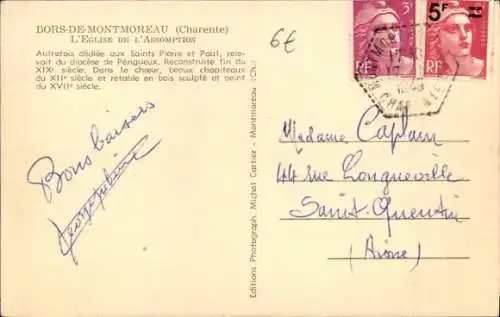 BORS-DE-MONTMOREAU (Charente)
L'EGLISE DE L'ASSOMPTION
Autrefois dédiée aux Saints Pierre et Paul, rele-
vait du diocèse de Périgueux. Reconstruite fin du
XIXe siècle. Dans le chœur, beaux chapiteaux
du XIIe siècle et retable en bois sculpté et peint
du XVIIe siècle.
6€
3F
5F
RF
RF
Bons baisers
Editions Photograph. Michel Cartier - Montmoreau (Ch.)
Madame Caplain
44 Rue Longueville
Saint-Quentin
(Aisne)